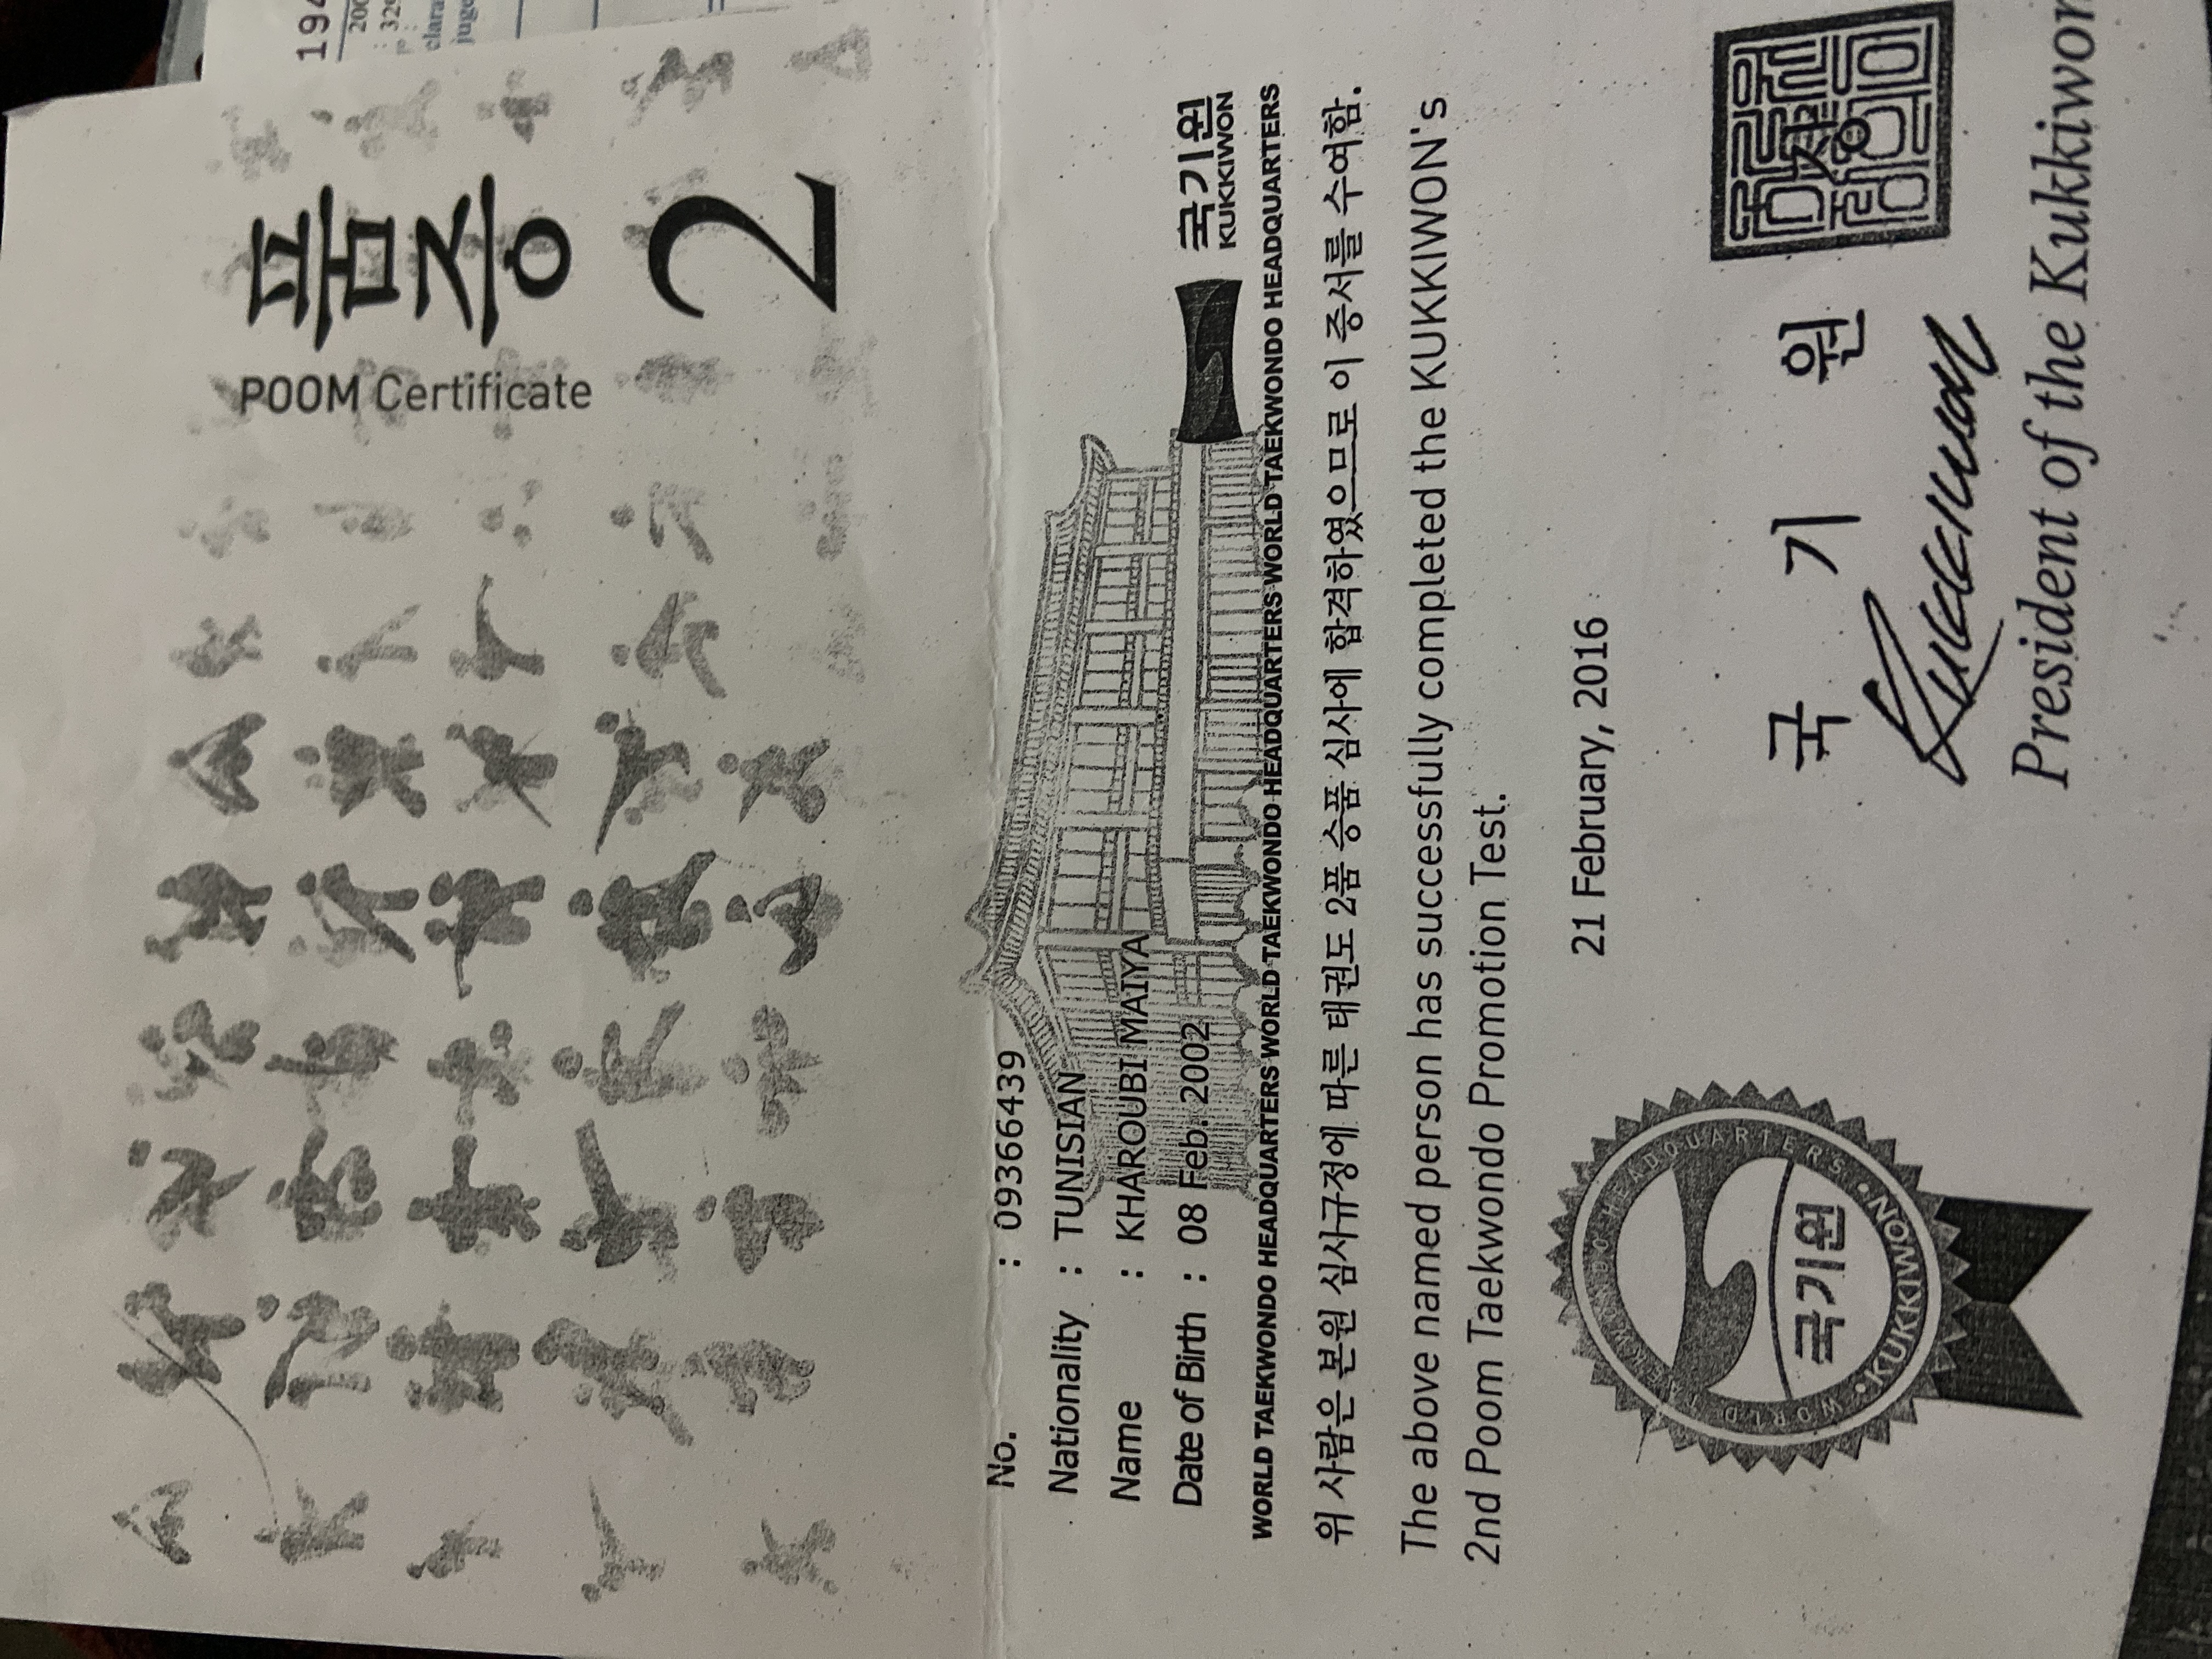 품증
POOM Certificate
2
No. : 09366439
Nationality : TUNISIAN
Name : KHAROUBI MAIYA
Date of Birth : 08 Feb. 2002
국기원
KUKKIWON
WORLD TAEKWONDO HEADQUARTERS·WORLD TAEKWONDO HEADQUARTERS·WORLD TAEKWONDO HEADQUARTERS·WORLD TAEKWONDO HEADQUARTERS·WORLD TAEKWONDO HEADQUARTERS
위 사람은 본원 심사규정에 따른 태권도 2품 승품 심사에 합격하였으므로 이 증서를 수여함.
The above named person has successfully completed the KUKKIWON's
2nd Poom Taekwondo Promotion Test.
21 February, 2016
국 기 원
Kukkiwon
President of the Kukkiwon
WORLD TAEKWONDO HEADQUARTERS
국기원
·KUKKIWON·
194
200